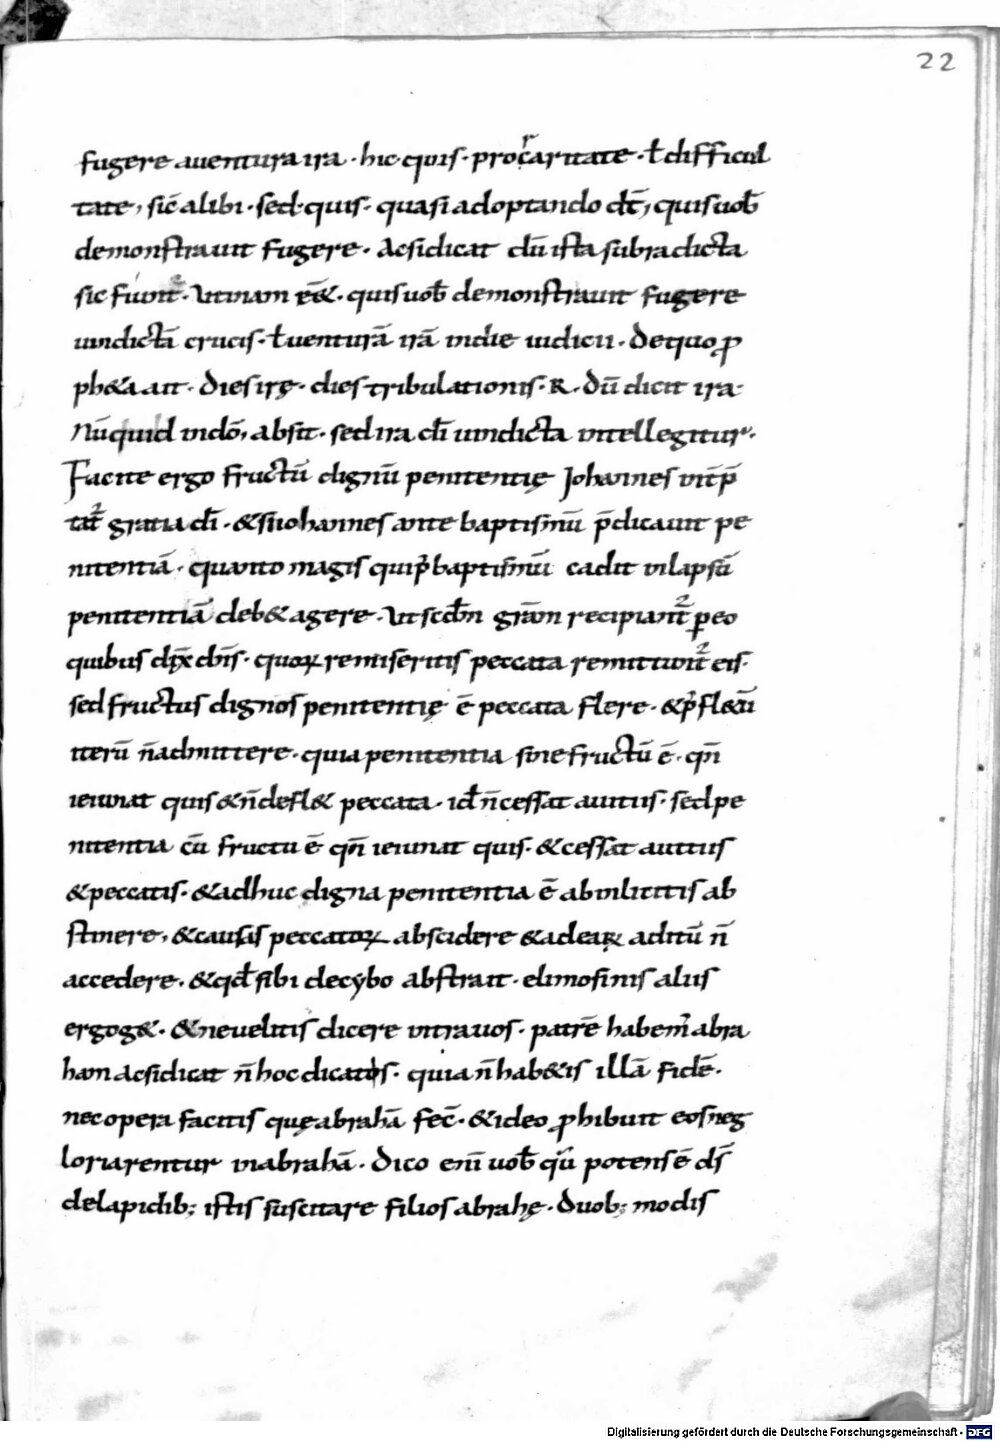 22
fugere auentura ira · hic quis · procaritate · ł difficul
tate, sic̄ alibi · sed quis · quasi adoptando dc̄t, quis uob̄
demonstrauit fugere · Acsidicat dū ista supradicta
sic fiunt · Utinam eē& · quis uob̄ demonstrauit fugere
uindictā crucis · ł uenturā irā indie iudicii · Dequo ꝓ
ph&a ait · Dies irę · dies tribulationis · R · Dū dicit ira ·
Nūquid indō, absit · sed ira dī uindicta intellegitur ·
Facite ergo fructū dignū penitentię Johannes int̄p̄
tat̄ gratia dī · & si iohannes ante baptismū p̄dicauit pe
nitentiā · quanto magis qui p̄ baptismū cadit in lapsū
penitentiā deb& agere · Ut scdm̄ gr̄am recipiant̄ ꝑ eo
quibus dix̄ dn̄s · quoꝝ remiseritis peccata remittunt̄ eis ·
sed fructus dignos penitentię ē peccata flere · & p̄ fl&ū
iterū n̄ admittere · quia penitentia sine fructū ē · qn̄
ieiunat quis & n̄ defl& peccata · id n̄ cessat auitiis · sed pe
nitentia cū fructu ē qn̄ ieiunat quis · & cessat auitiis
& peccatis · & adhuc digna penitentia ē ab inlicitis ab
stinere, & causis peccatoꝝ abscidere & adeaꝝ aditū n̄
accedere · & qd̄ sibi decybo abstrait · elimosinis aliis
erogɇt · & ne uelitis dicere intra uos · patrē habem̄ abra
ham Acsidicat n̄ hoc dicatis · quia n̄ hab&is illā fidē ·
nec opera facitis quę abrahā fec̄ · & ideo ꝓhibuit eos ne g
loriarentur in abrahā · Dico enī uob̄ qm̄ potens ē ds̄
delapidib; istis suscitare filios abrahę · Duob; modis
Digitalisierung gefördert durch die Deutsche Forschungsgemeinschaft - DFG